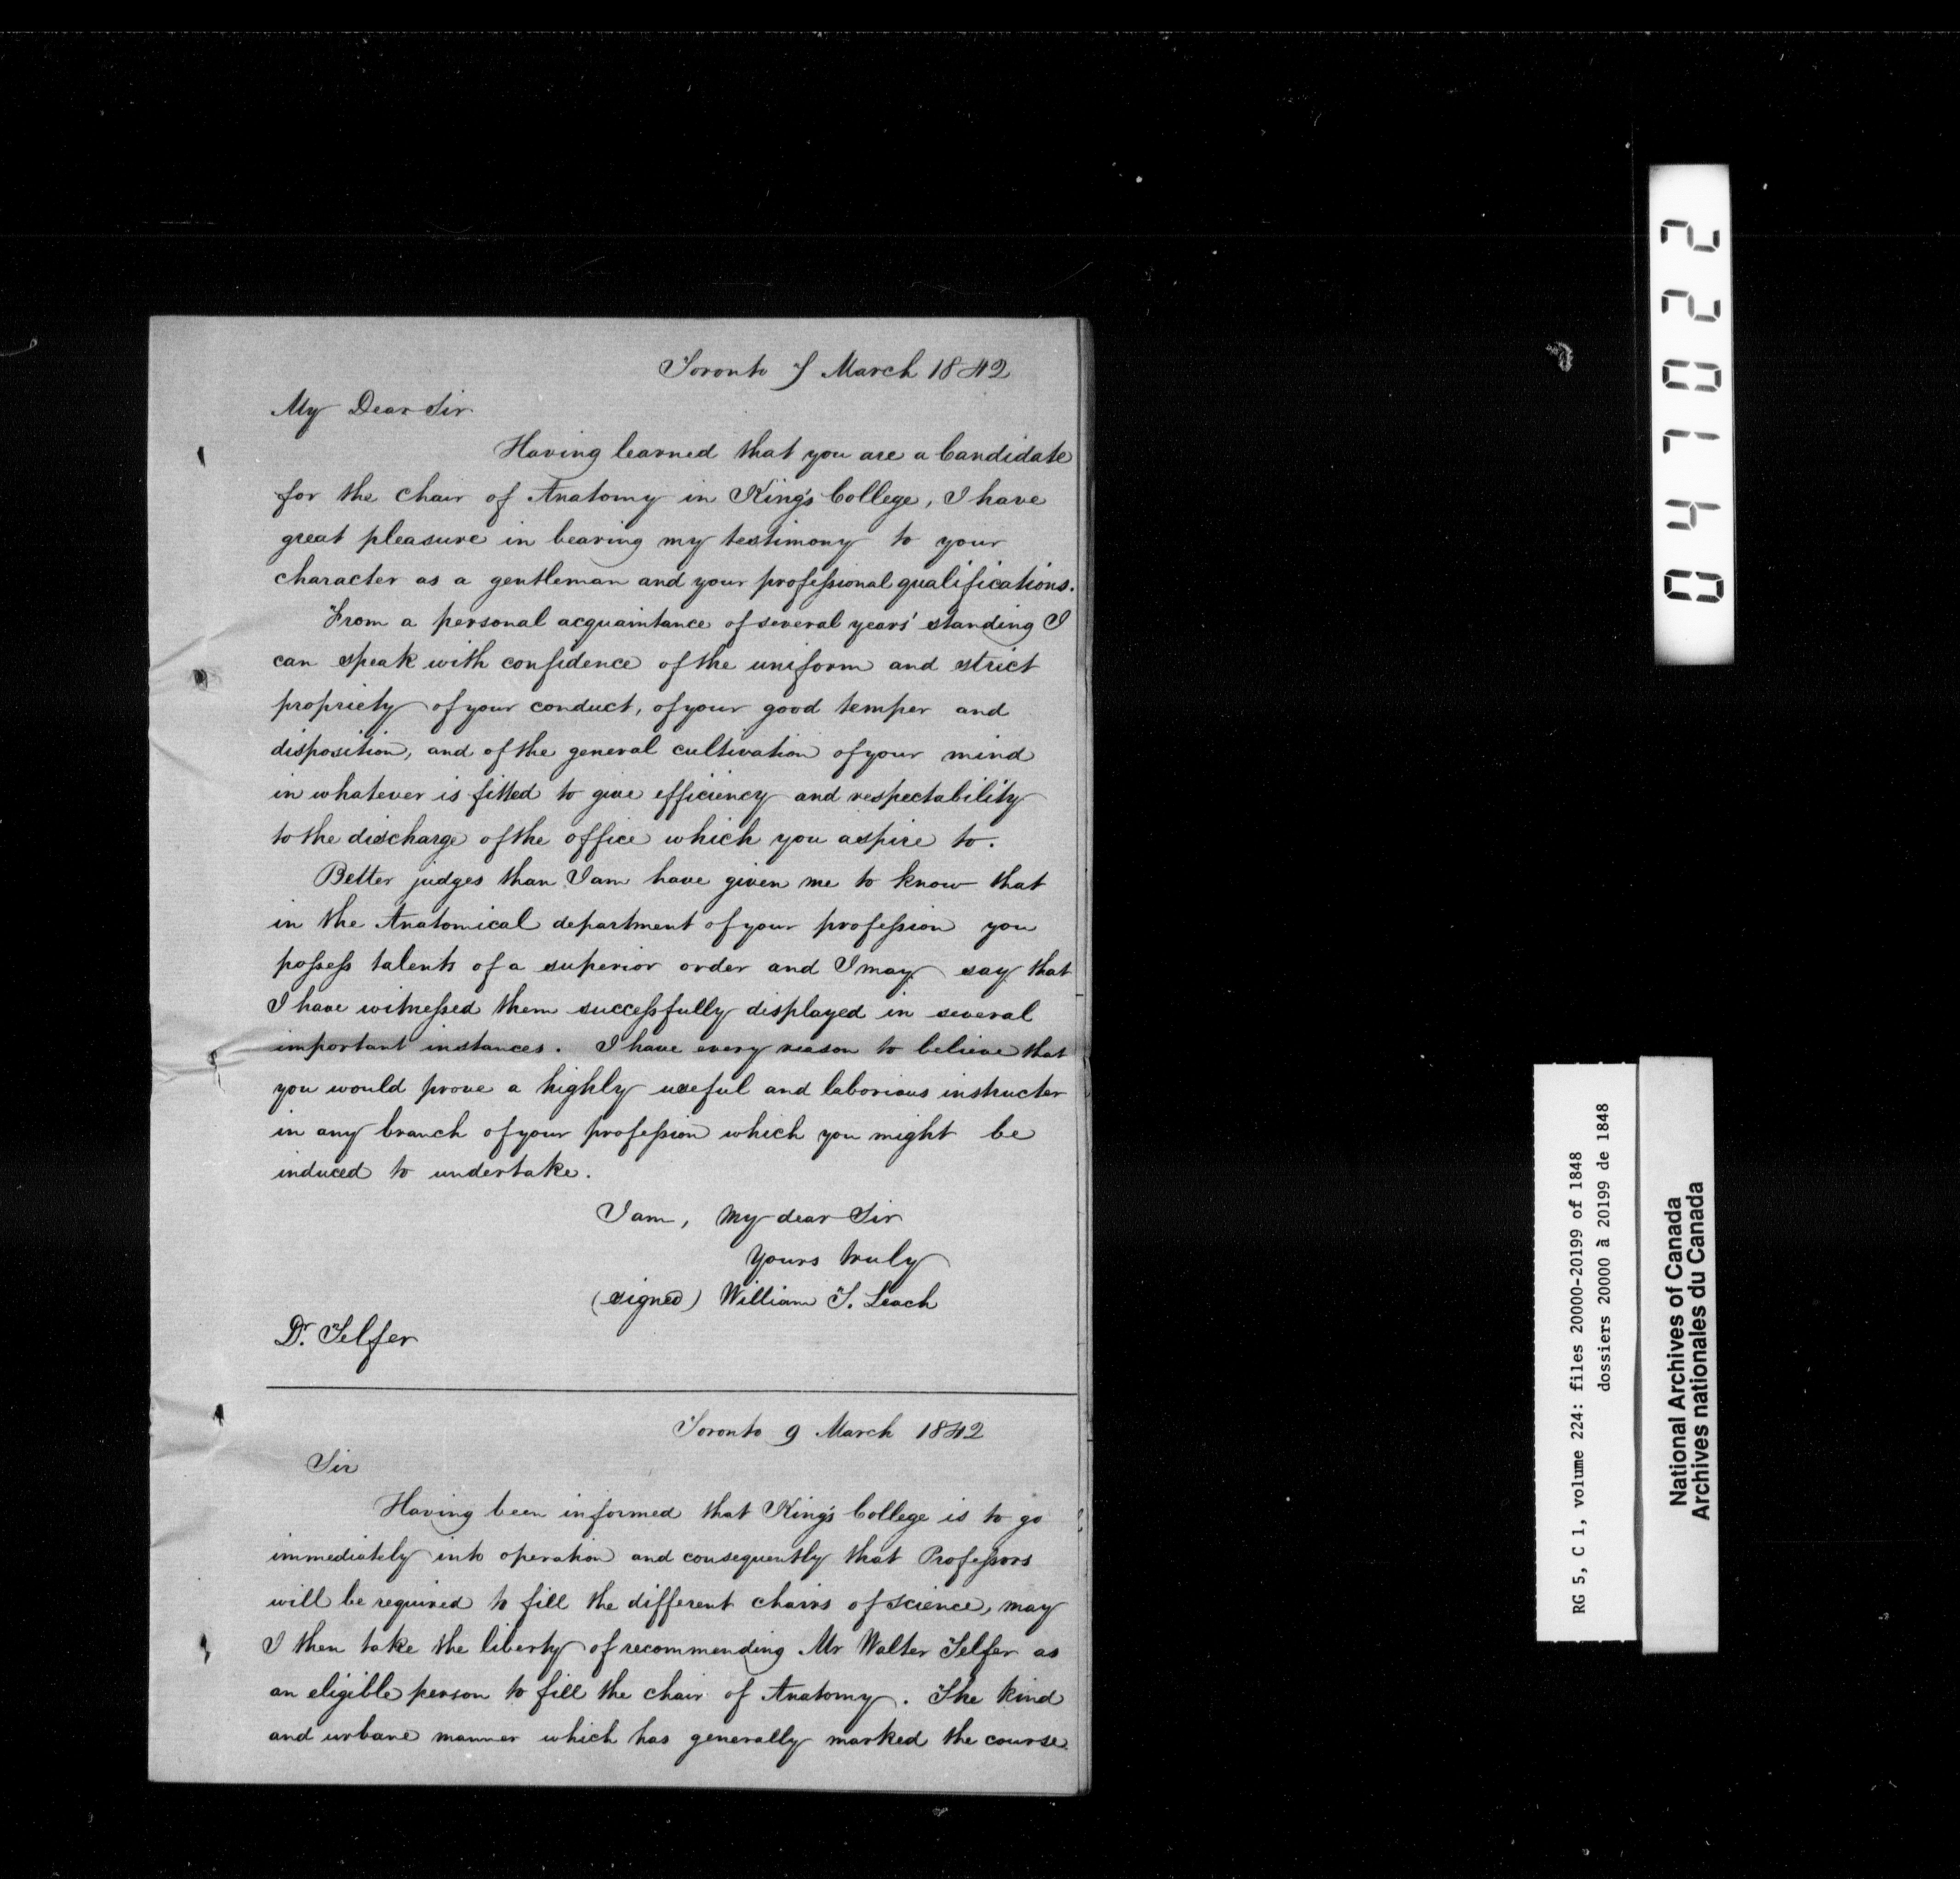 Toronto 7 March 1842
My Dear Sir
Having learned that you are a Candidate
for the chair of Anatomy in King's College, I have
great pleasure in bearing my testimony to your
character as a gentleman and your professional qualifications.
From a personal acquaintance of several years' standing I
can speak with confidence of the uniform and strict
propriety of your conduct, of your good temper and
disposition, and of the general cultivation of your mind
in whatever is fitted to give efficiency and respectability
to the discharge of the office which you aspire to.
Better judges than I am have given me to know that
in the Anatomical department of your profession you
possess talents of a superior order and I may say that
I have witnessed them successfully displayed in several
important instances. I have every reason to believe that
you would prove a highly useful and laborious instructer
in any branch of your profession which you might be
induced to undertake.
I am, My dear Sir
Yours truly
(signed) William T. Leach
Dr. Telfer
Toronto 9 March 1842
Sir
Having been informed that King's College is to go
immediately into operation and consequently that Professors
will be required to fill the different chairs of science, may
I then take the liberty of recommending Mr Walter Telfer as
an eligible person to fill the chair of Anatomy. The kind
and urbane manner which has generally marked the course
047022
RG 5, C 1, volume 224: files 20000-20199 of 1848
dossiers 20000 à 20199 de 1848
National Archives of Canada
Archives nationales du Canada